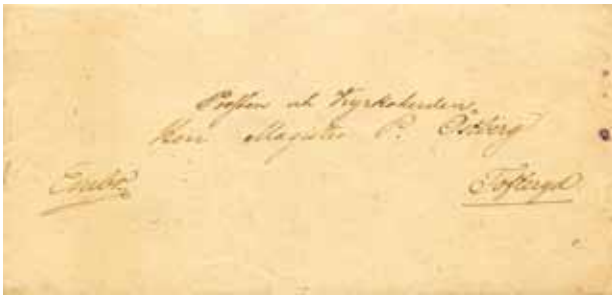 Prosten och Kyrkoherden
Herr Magister P. Östberg
Enebo
Tofteryd